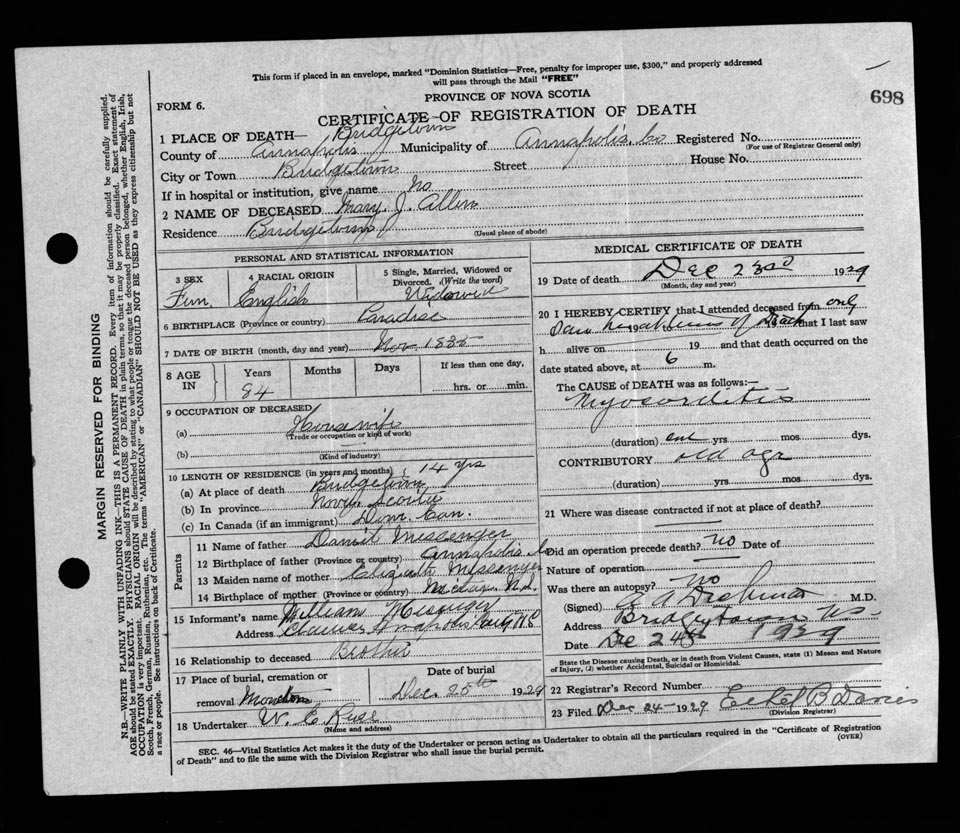 This form if placed in an envelope, marked "Dominion Statistics—Free, penalty for improper use, $300," and properly addressed
will pass through the Mail "FREE"
698
FORM 6.
PROVINCE OF NOVA SCOTIA
CERTIFICATE OF REGISTRATION OF DEATH
1 PLACE OF DEATH— Bridgetown
County of Annapolis Municipality of Annapolis Co Registered No.
(For use of Registrar General only)
City or Town Bridgetown Street House No.
If in hospital or institution, give name No
2 NAME OF DECEASED Mary. J. Allen
Residence Bridgetown
(Usual place of abode)
PERSONAL AND STATISTICAL INFORMATION
3 SEX 4 RACIAL ORIGIN 5 Single, Married, Widowed or Divorced. (Write the word)
Fem. English Widowed
6 BIRTHPLACE (Province or country) Paradise
7 DATE OF BIRTH (month, day and year) Nov. 1835
8 AGE IN Years Months Days If less than one day,
84 hrs. or min.
9 OCCUPATION OF DECEASED
(a) Housewife
(Trade or occupation or kind of work)
(b)
(Kind of industry)
10 LENGTH OF RESIDENCE (in years and months) 14 yrs
(a) At place of death Bridgetown
(b) In province Nova Scotia
(c) In Canada (if an immigrant) Dom. Can.
Parents
11 Name of father Daniel Messenger
12 Birthplace of father (Province or country) Annapolis
13 Maiden name of mother Elizabeth Messenger
14 Birthplace of mother (Province or country) N.S.
15 Informant's name William Messenger
Address
16 Relationship to deceased Brother
17 Place of burial, cremation or removal Date of burial
Dec. 25th 1929
18 Undertaker W. E. Reese
(Name and address)
MEDICAL CERTIFICATE OF DEATH
19 Date of death Dec 23rd 1929
(Month, day and year)
20 I HEREBY CERTIFY that I attended deceased from only
19 that I last saw
h alive on 19 and that death occurred on the
date stated above, at 6 m.
The CAUSE of DEATH was as follows:—
Myocarditis
(duration) one yrs mos dys.
CONTRIBUTORY old age
(duration) yrs mos dys.
21 Where was disease contracted if not at place of death?
Did an operation precede death? No Date of
Nature of operation
Was there an autopsy? No
(Signed) M.D.
Address Bridgetown N.S.
Date Dec 24th 1929
State the Disease causing Death, or in death from Violent Causes, state (1) Means and Nature
of Injury, (2) whether Accidental, Suicidal or Homicidal.
22 Registrar's Record Number
23 Filed Dec 24 - 1929 Ethel B Davies
(Division Registrar)
SEC. 46—Vital Statistics Act makes it the duty of the Undertaker or person acting as Undertaker to obtain all the particulars required in the "Certificate of Registration
of Death" and to file the same with the Division Registrar who shall issue the burial permit.
(OVER)
MARGIN RESERVED FOR BINDING
N.B.—WRITE PLAINLY WITH UNFADING INK—THIS IS A PERMANENT RECORD. Every item of information should be carefully supplied.
AGE should be stated EXACTLY. PHYSICIANS should STATE CAUSE OF DEATH in plain terms, so that it may be properly classified. Exact statement of
OCCUPATION is very important. RACIAL ORIGIN will be described by stating to what people or tongue the deceased person belonged, whether English, Irish,
Scotch, French, German, Russian, Ruthenian, etc. The terms "AMERICAN" or "CANADIAN" SHOULD NOT BE USED as they express citizenship but not
a race or people. See instructions on back of Certificate.